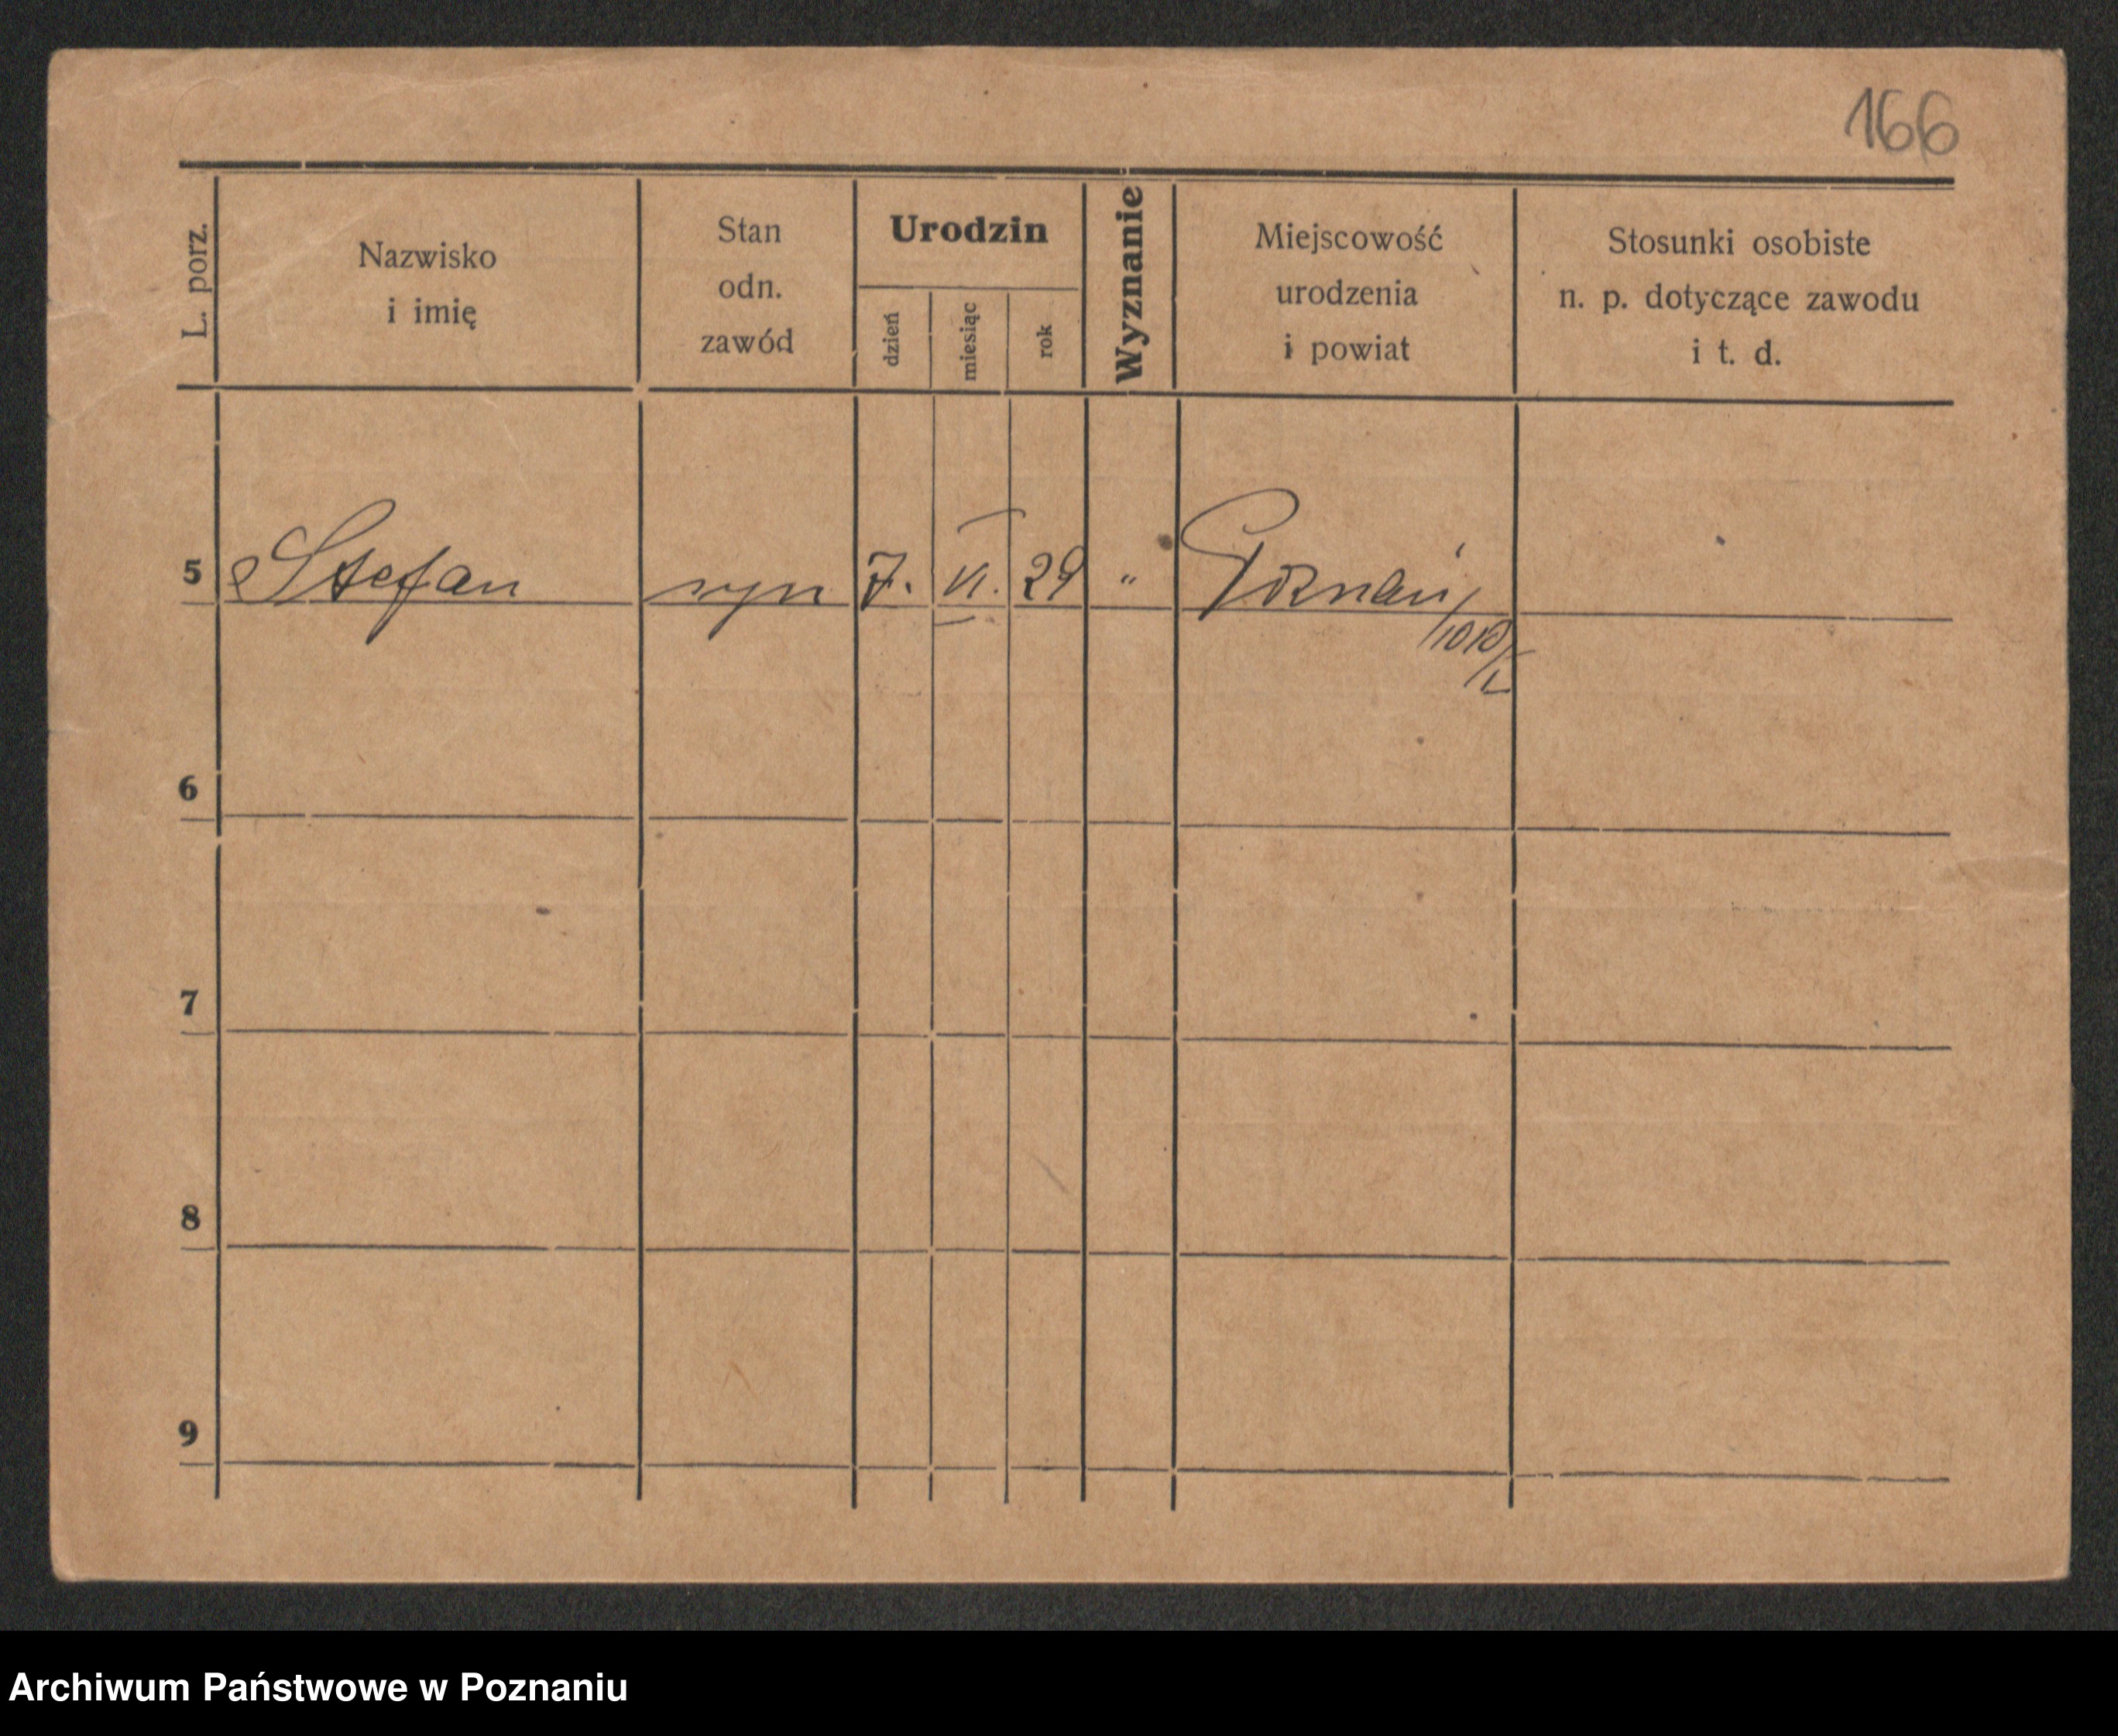 166
L. porz.
Nazwisko
i imię
Stan
odn.
zawód
Urodzin
dzień
miesiąc
rok
Wyznanie
Miejscowość
urodzenia
i powiat
Stosunki osobiste
n. p. dotyczące zawodu
i t. d.
5 Stefan syn 7. VI. 29 " Poznań
6
7
8
9
Archiwum Państwowe w Poznaniu